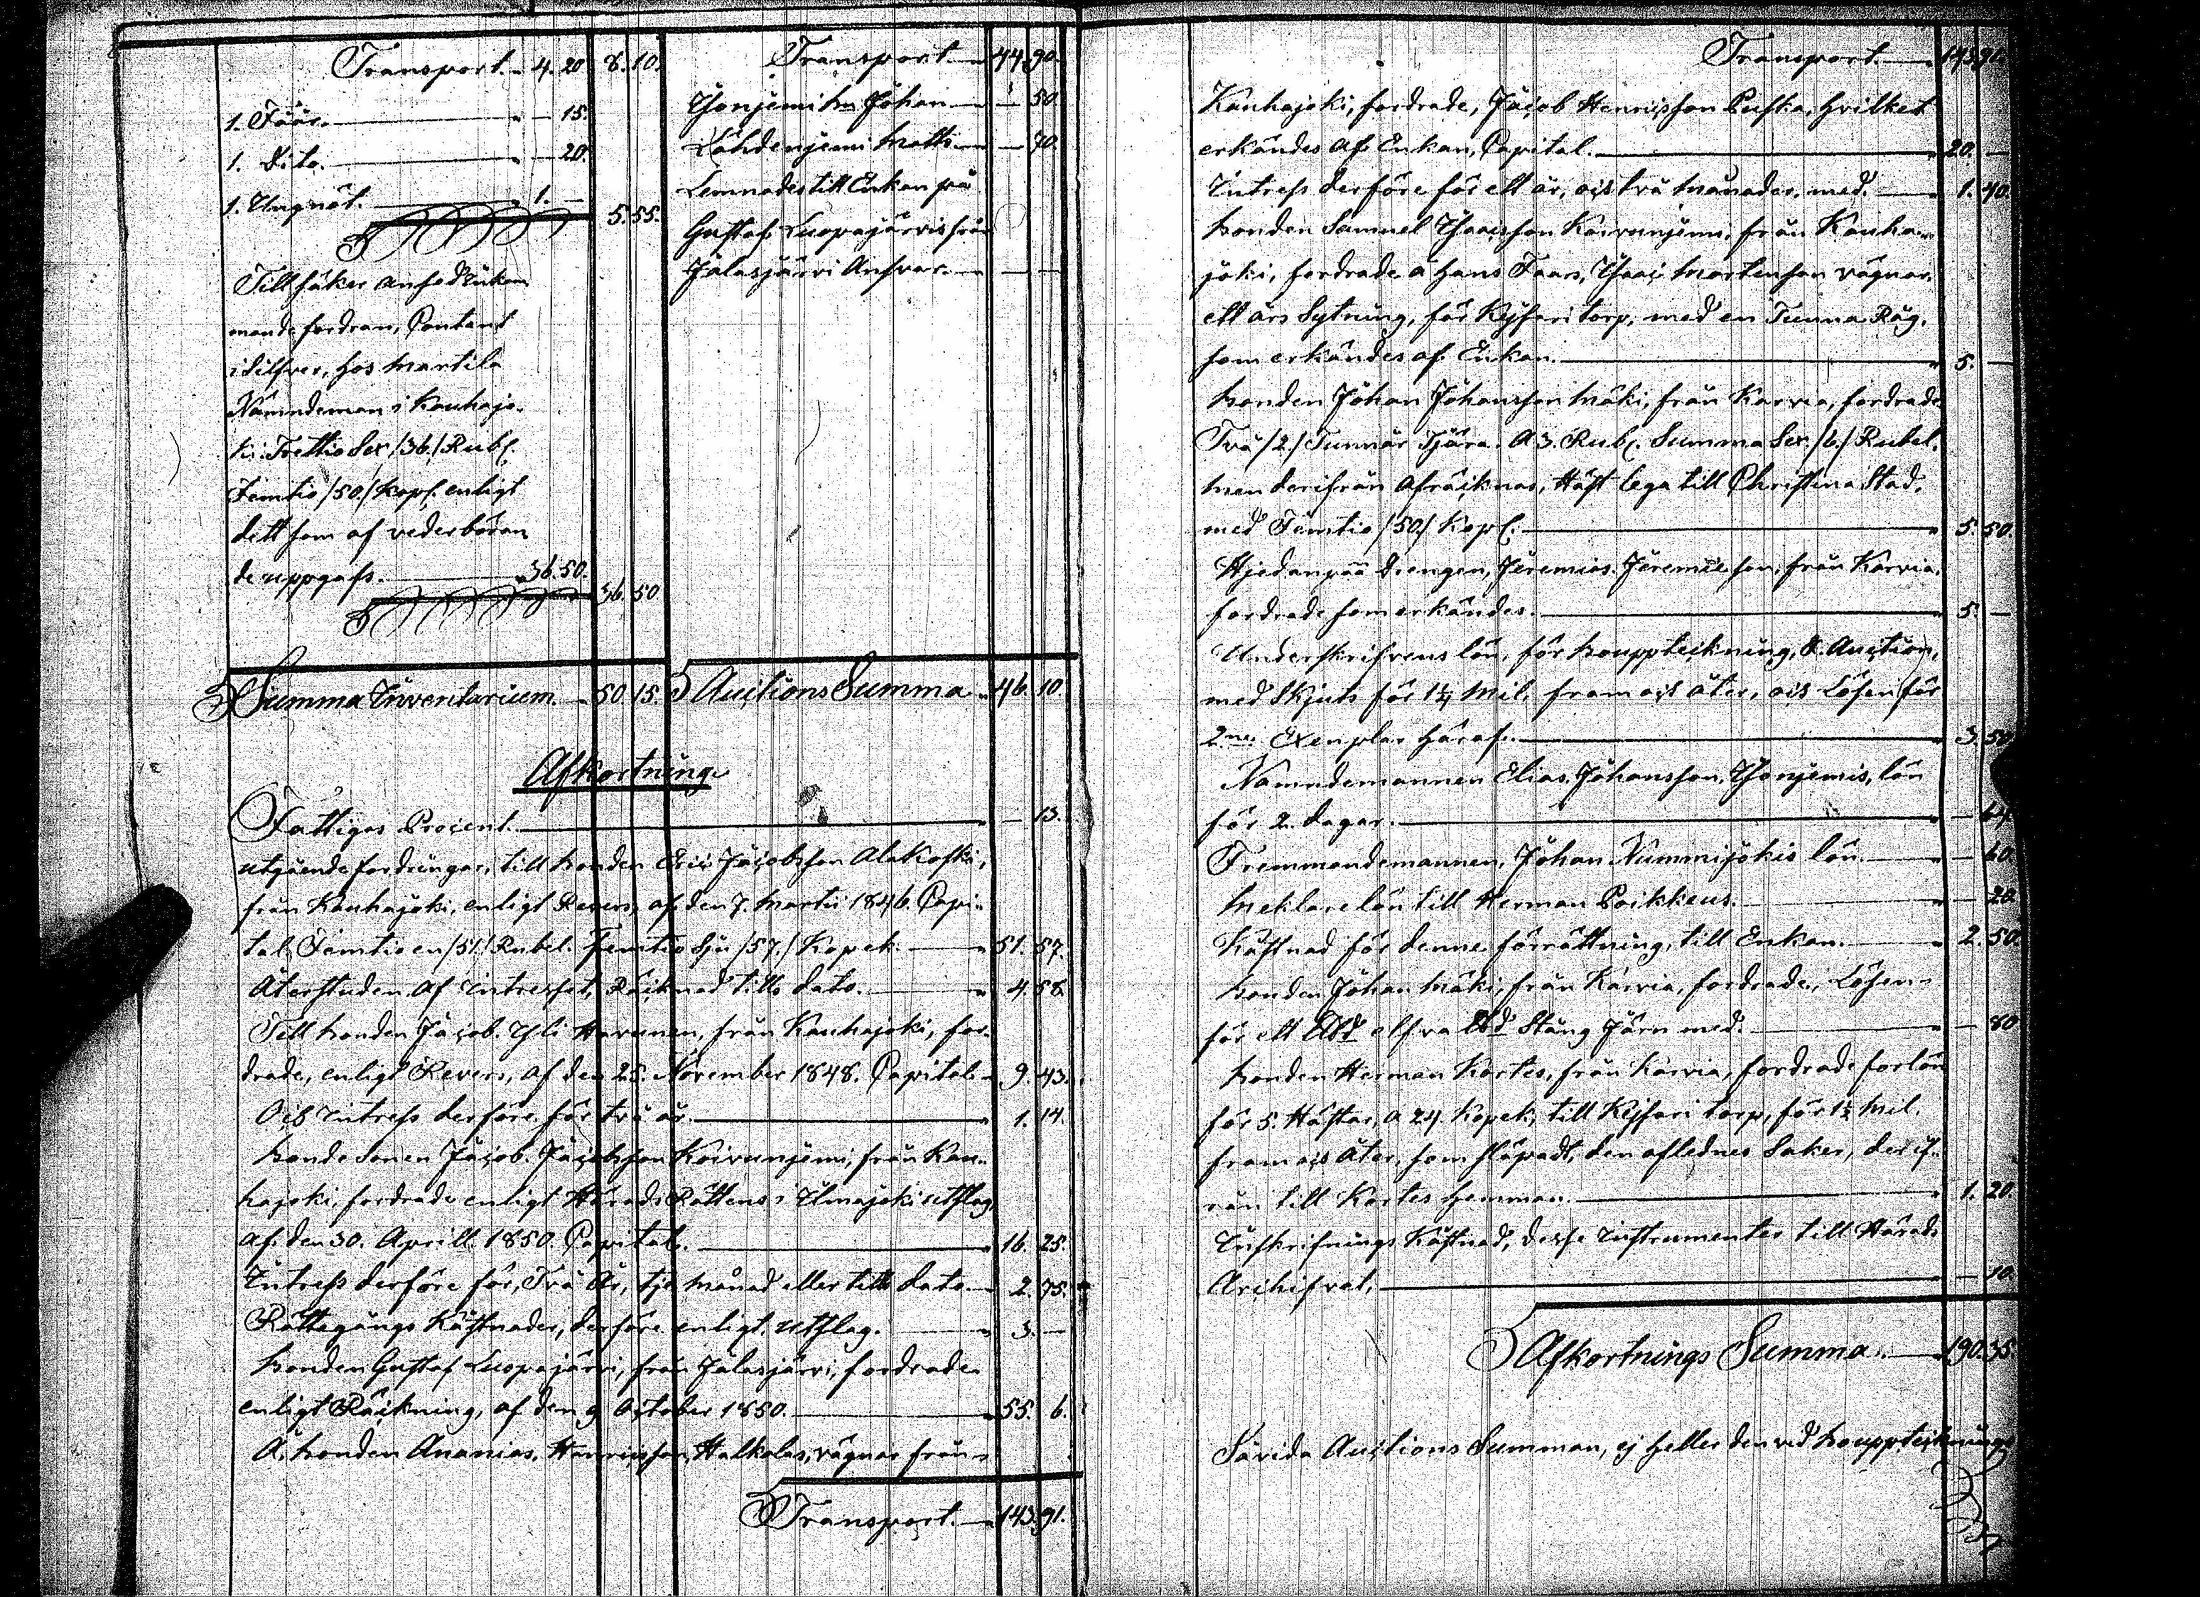 Transport. 4. 20 8. 10.
1. Fåår. 15.
1. Dito. 20.
1. Ungnöt. 1. —
5. 55.
Till säker ansedd
mande fordran, Contant
i silfver, hos Martila
Nämndeman i Kauhajo-
ki Trettio Sex /36./ Rubl.
Femtio /50./ Kop. enligt
ditt som af vederböran
de uppgafs. 36. 50.
36. 50
Summa Inventarium. 50. 15.
Transport 44. 90.
Johan — 50.
Matts — 70.
Lemnades till Enkan på
Gustaf Luopajärvis från
Jalasjärvi Ansvar. — —
Auctions Summa 46. 10.
Afkortning
Fattiges Procent. — 13.
utgående fordringar, till bonden Eric Jacobsson Alakoski,
från Kauhajoki, enligt Revers, af den 7. Martii 1846. Capi-
tal Femtio en /51./ Rubel. Femtio Sju /57./ Kopek. 51. 57.
Återstuden af Intresset, Räcknad tills dato. 4. 58.
Till bonden Jacob Yli Harunen, från Kauhajoki, for-
drade, enligt Revers, af den 25. November 1848. Capital 9. 43.
Och Intress derföre för två år. 1. 14.
Bonde Sonen Jacob Jacobsson Koivunjemi, från Kau-
hajoki, fordrade enligt Härads Rättens i Ilmajoki utslag
af den 30. Aprill 1850. Capital. 16. 25.
Intress derföre för, Två År, månad eller till dato 2. 75.
Rättegångs Kåstnader, derföre enligt, utslag. 3. —
Bonden Gustaf Luopajärvi, från Jalasjärvi, fordrade
enligt Räckning, af den 9 October 1850. 55. 6.
Å bonden Ananias Henricsson Halkolas, vägnar från
Transport. 143. 91.
Transport. 143. 91.
Kauhajoki, fordrade, Jacob Henricsson Puska, hvilket
erkändes af Enkan, Capital. 20. —
Intress derföre för ett år, och två månader, med. 1. 40.
Bonden Samuel Isacsson Koivunjemi, från Kauha-
joki, fordrade å hans Faars, Isac Martensson vägnar,
ett års Sytning, för Kejsari torp, med en Tunna Råg,
som erkändes af Enkan. 5. —
Bonden Johan Johansson Mäki, från Karvia, fordrade
Två /2./ Tunnär Tjära. A 3. Rubl. Summa Sex /6./ Rubel.
men derifrån afräcknas, Häst lega till Christina Stad,
med Femtio /50/ Kop. 5. 50.
Hjedanpää Drengen, Jeremias Jeremie son, från Karvia,
fordrade som erkändes. 5. —
Underskrifvens lön, för bouppteckning, & Auction,
med Skjuts för 1¼ Mil, fram och åter, och Lösen för
2ne. Exemplar häraf. 3. 50.
Nämndemannen Elias Johansson lön
för 2. dagar. — 64.
Fremmandemannen, Johan Nummijokis lön. — 60.
Meklare lön till Herman Poikkeus. — 20.
Kåstnad för denne förrättning, till Enkan. 2. 50.
Bonden Johan Mäki, från Karvia, fordrade, Lösen
för ett Stång Järn med. — 80
Bonden Herman Kortes, från Karvia, fordrade forlön
för 5. Hästar, a 24. Kopek, till Kejsari torp, för Mil.
fram och åter, som släpadt, den aflednes Saker, derif-
rån till Kortes hemman. 1. 20.
Inskrifnings Kåstnad, desse Instrumenter till Härads
Archifvet. — 10.
Afkortnings Summa. 190. 35.
Såvida Auctions Summan, ej heller den vid bouppteknings